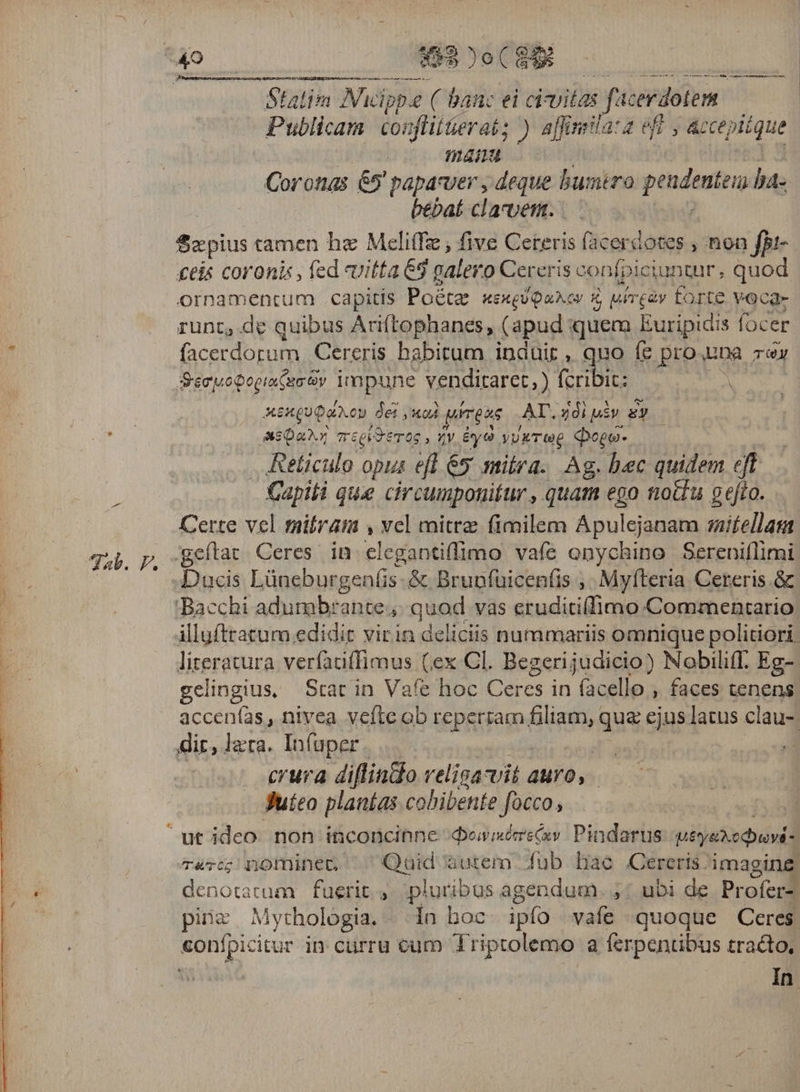 40 )o(
Statim Nicippæ (hanc ei civitas ſacerdotem
Publicam conſtituerat; ) aſſimilata eſt , accepitque
manu
Coronas & papaver , deque humero pendentem ha-
bebat clavem.
Sæpius tamen hæ Meliſſæ , ſive Cereris ſacerdotes , non ſpi-
ceis coronis , ſed vitta & galero Cereris conſpiciuntur , quod
ornamentum capitis Poëtæ κεκρύφαλον & μίτραν forte voca-
runt, de quibus Ariſtophanes, (apud quem Euripidis ſocer
ſacerdotum Cereris habitum induit , quo ſe pro una τῶν
θεσμοφοριαζουσῶν impune venditaret,) ſcribit:
κεκρυφάλου δεῖ , καὶ μίτρας ΑΓ. ἡδὶ μὲν ἐν
κεφαλὴ περίθετος , ἣν ἐγὼ νύκτωρ φορῶ.
Reticulo opus eſt & mitra. Ag. hæc quidem eſt
Capiti quæ circumponitur , quam ego noctu geſto.
Certe vel mitram , vel mitræ ſimilem Apulejanam mitellam
Tab. V. geſtat Ceres in elegantiſſimo vaſe onychino Sereniſſimi
Ducis Lüneburgenſis & Brunſuicenſis , Myſteria Cereris &
Bacchi adumbrante , quod vas eruditiſſimo Commentario
illuſtratum edidit vir in deliciis nummariis omnique politiori
literatura verſatiſſimus (ex Cl. Begeri judicio) Nobiliſſ. Eg-
gelingius. Stat in Vaſe hoc Ceres in ſacello , faces tenens
accenſas , nivea veſte ob repertam filiam, quæ ejus latus clau-
dit, læta. Inſuper
crura diſtincto religavit auro,
luteo plantas cohibente ſocco,
ut ideo non inconcinne φοινικόπεζαν Pindarus μεγαλοφωνό-
τατος nominet. Quid autem ſub hac Cereris imagine
denotatum fuerit , pluribus agendum , ubi de Proſer-
pinæ Mythologia. In hoc ipſo vaſe quoque Ceres
conſpicitur in curru cum Triptolemo a ſerpentibus tracto,
In